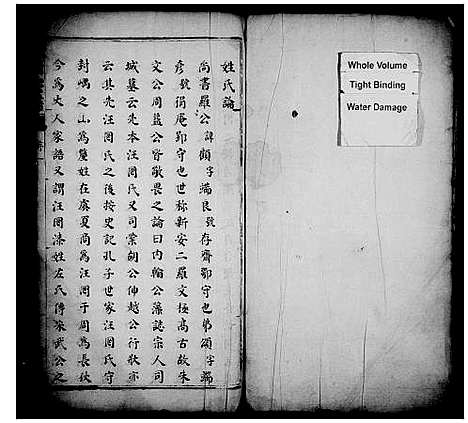 姓氏論
尚書羅公諱顗字端良號存齋鄂守也弟頌字端
彥號狷庵郢守也世称新安二羅文極高古故朱
文公周益公皆敬畏之論曰内翰公藻誌宗人司
城墓云先本汪罔氏又司業胡公伸越公行狀亦
云其先汪罔氏之後按史記孔子世家汪罔氏守
封嵎之山為釐姓在虞夏商為汪罔于周為長狄
今為大人家語又謂汪罔漆姓左氏傳宋武公之
Whole Volume
Tight Binding
Water Damage